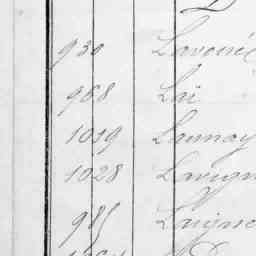 930 Lavoué
968 Laï
1019 Launay
1028 Lavign
985 Laigne